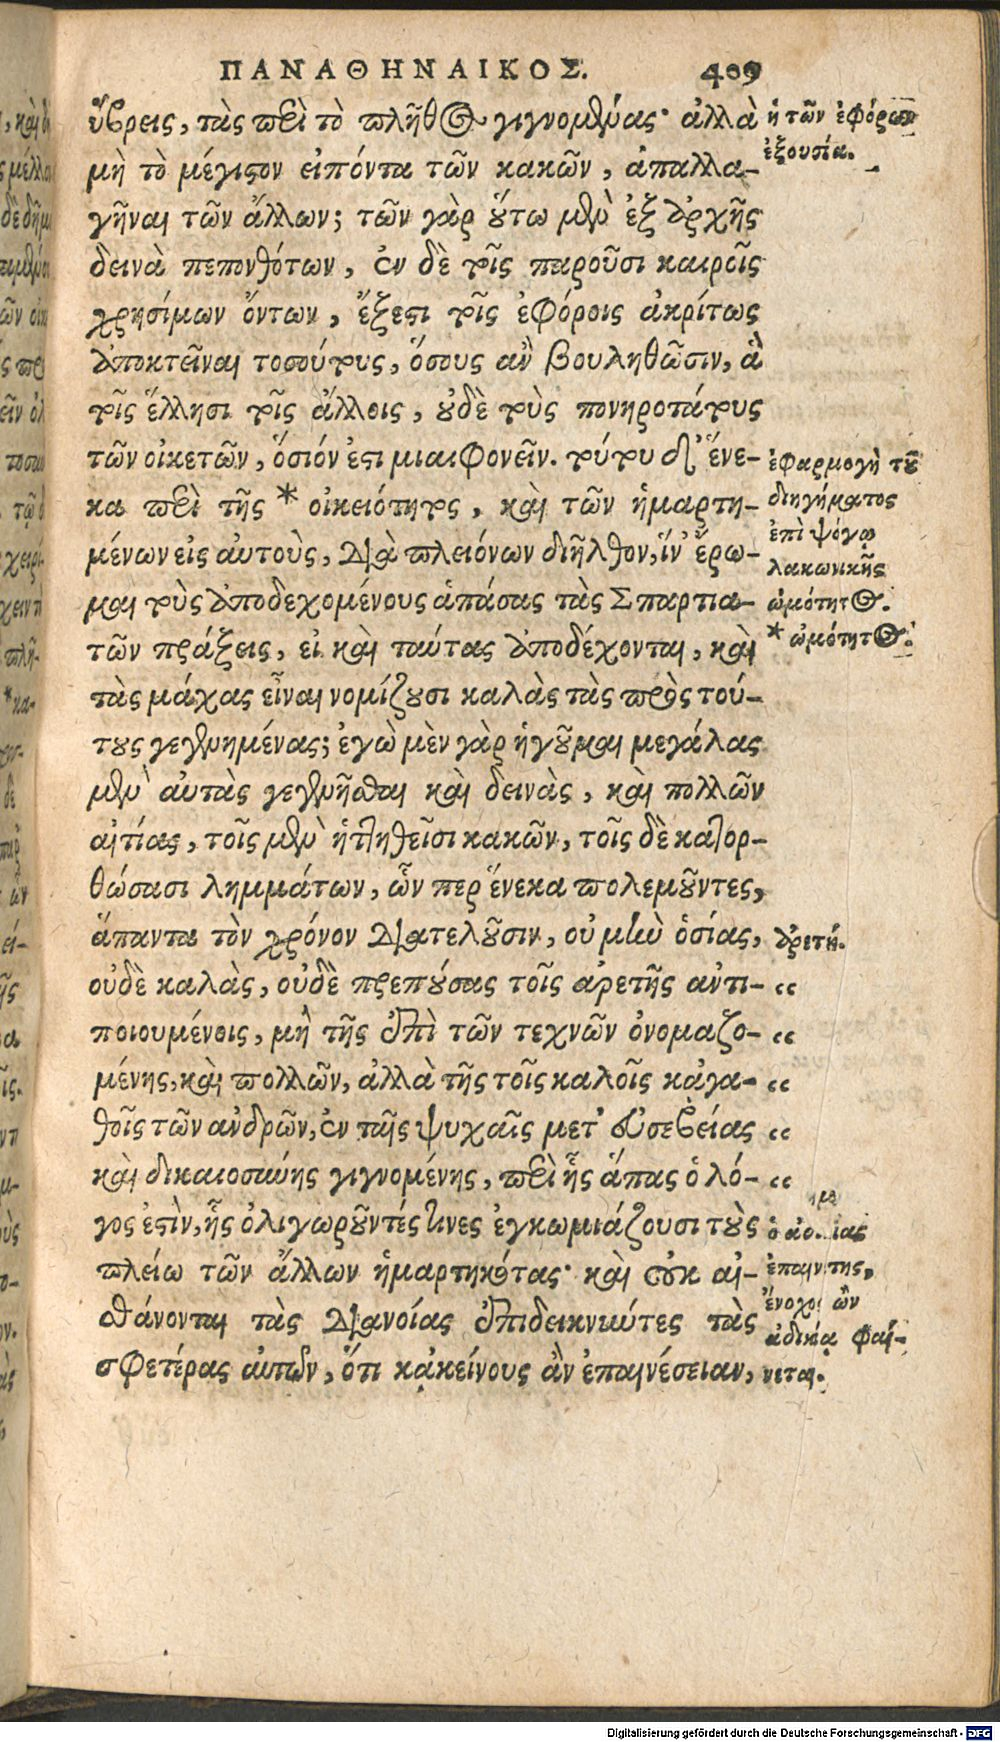 ΠΑΝΑΘΗΝΑΙΚΟΣ. 409
ὕβρεις, τὰς περὶ τὸ πλῆθος γιγνομένας· ἀλλὰ
μὴ τὸ μέγιστον εἰπόντα τῶν κακῶν, ἀπαλλα-
γῆναι τῶν ἄλλων; τῶν γὰρ οὕτω μὲν ἐξ ἀρχῆς
δεινὰ πεπονθότων, ἐν δὲ τοῖς παροῦσι καιροῖς
χρησίμων ὄντων, ἔξεστι τοῖς ἐφόροις ἀκρίτως
ἀποκτεῖναι τοσούτους, ὅσους ἂν βουληθῶσιν, ἃ
τοῖς ἕλλησι τοῖς ἄλλοις, οὐδὲ τοὺς πονηροτάτους
τῶν οἰκετῶν, ὅσιόν ἐστι μιαιφονεῖν. τούτου δ' ἕνε-
κα περὶ τῆς * οἰκειότητος, καὶ τῶν ἡμαρτη-
μένων εἰς αὐτοὺς, διὰ πλειόνων διῆλθον, ἵν' ἔρω-
μαι τοὺς ἀποδεχομένους ἁπάσας τὰς Σπαρτια-
τῶν πράξεις, εἰ καὶ ταύτας ἀποδέχονται, καὶ
τὰς μάχας εἶναι νομίζουσι καλὰς τὰς πρὸς τού-
τους γεγενημένας; ἐγὼ μὲν γὰρ ἡγοῦμαι μεγάλας
μὲν αὐτὰς γεγενῆσθαι καὶ δεινὰς, καὶ πολλῶν
αἰτίας, τοῖς μὲν ἡττηθεῖσι κακῶν, τοῖς δὲ κατορ-
θώσασι λημμάτων, ὧν περ ἕνεκα πολεμοῦντες,
ἅπαντα τὸν χρόνον διατελοῦσιν, οὐ μὴν ὁσίας,
οὐδὲ καλὰς, οὐδὲ πρεπούσας τοῖς ἀρετῆς ἀντι-
ποιουμένοις, μὴ τῆς ἐπὶ τῶν τεχνῶν ὀνομαζο-
μένης, καὶ πολλῶν, ἀλλὰ τῆς τοῖς καλοῖς κἀγα-
θοῖς τῶν ἀνδρῶν, ἐν ταῖς ψυχαῖς μετ' εὐσεβείας
καὶ δικαιοσύνης γιγνομένης, περὶ ἧς ἅπας ὁ λό-
γος ἐστὶν, ἧς ὀλιγωροῦντές τινες ἐγκωμιάζουσι τοὺς
πλείω τῶν ἄλλων ἡμαρτηκότας· καὶ οὐκ αἰ-
σθάνονται τὰς διανοίας ἐπιδεικνύντες τὰς
σφετέρας αὐτῶν, ὅτι κᾀκείνους ἂν ἐπαινέσειαν,
ἡ τῶν ἐφόρων
ἐξουσία.
ἐφαρμογὴ τοῦ
διηγήματος
ἐπὶ ψόγῳ
λακωνικῆς
ὠμότητος.
* ὠμότητος.
ἀρετή.
“
“
“
“
“
ἐπαινετης,
ἔνοχος ὢν
ἀδικίᾳ φαί-
νεται.
Digitalisierung gefördert durch die Deutsche Forschungsgemeinschaft - DFG